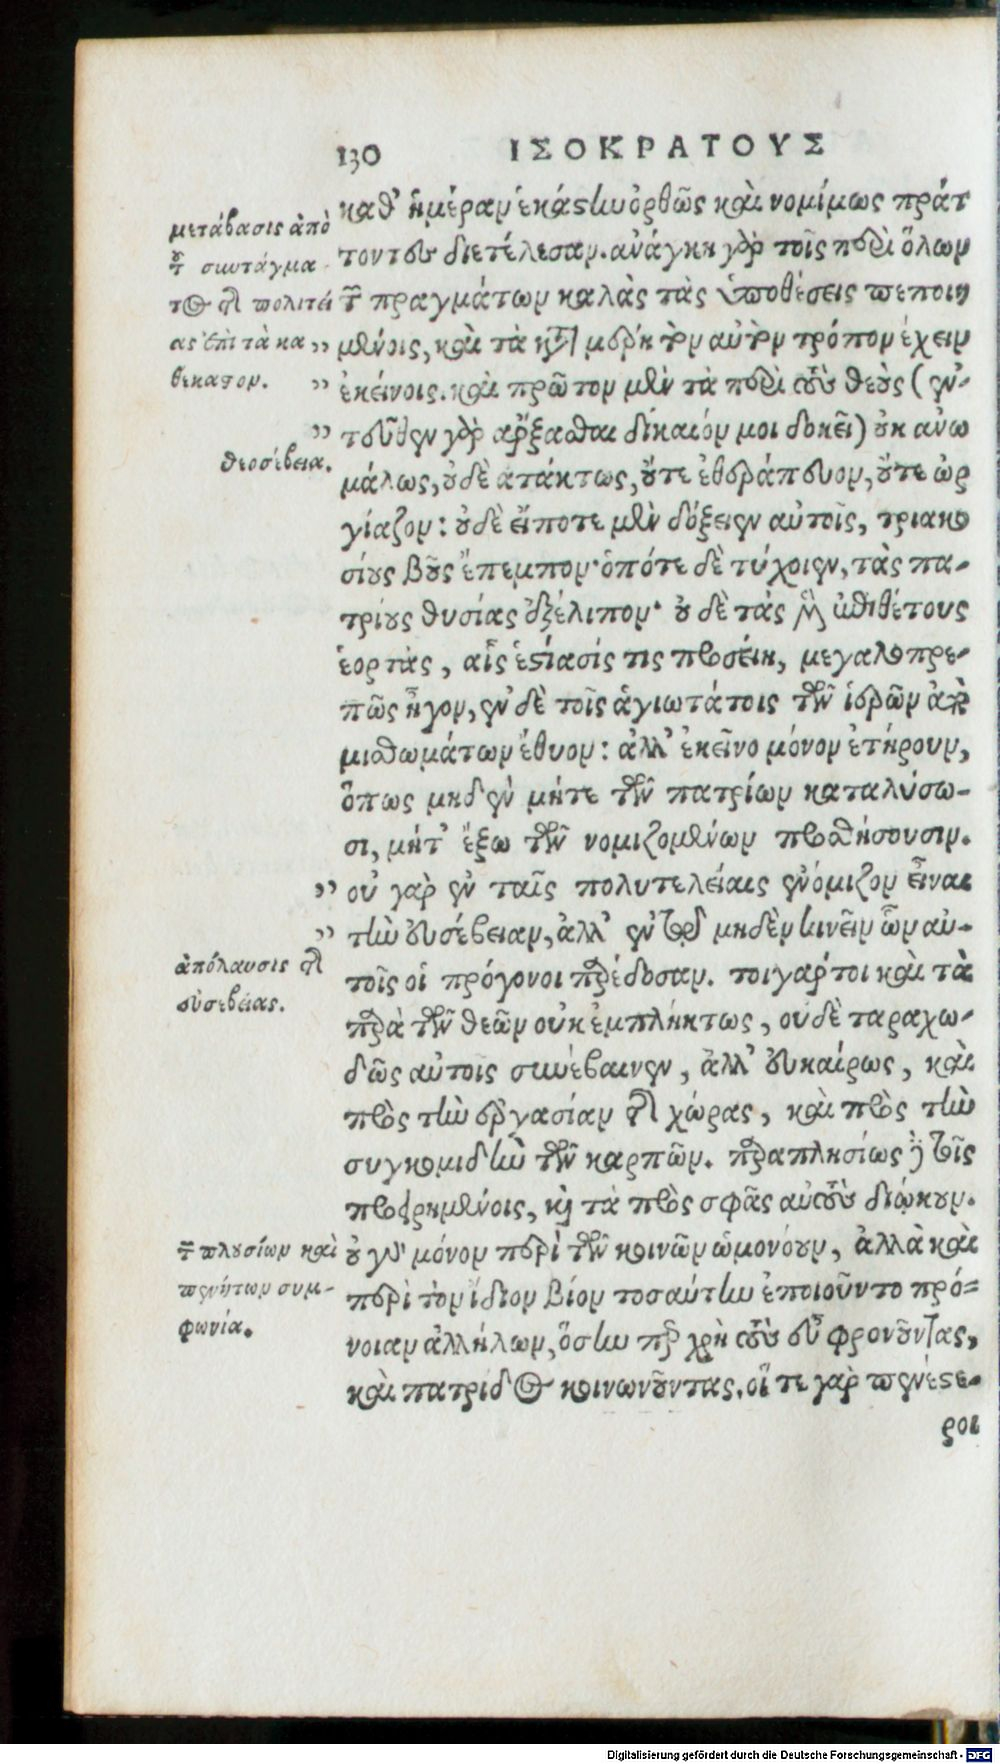 130 ΙΣΟΚΡΑΤΟΥΣ
καθ' ἡμέραν ἑκάστην ὀρθῶς καὶ νομίμως πράτ
τοντες διετέλεσαν. ἀνάγκη γὰρ τοῖς περὶ ὅλων
τῶν πραγμάτων καλὰς τὰς ὑποθέσεις πεποιη
μένοις, καὶ τὰ κατὰ μέρη τὸν αὐτὸν τρόπον ἔχειν
ἐκείνοις. καὶ πρῶτον μὲν τὰ περὶ τοὺς θεοὺς (ἐν-
τεῦθεν γὰρ ἄρξασθαι δίκαιόν μοι δοκεῖ) οὐκ ἀνω
μάλως, οὐδὲ ἀτάκτως, οὔτε ἐθεράπευον, οὔτε ὠρ
γίαζον: οὐδὲ εἴποτε μὲν δόξειεν αὐτοῖς, τριακο
σίους βοῦς ἔπεμπον· ὁπότε δὲ τύχοιεν, τὰς πα-
τρίους θυσίας ἐξέλιπον· οὐδὲ τὰς μὲν ἐπιθέτους
ἑορτὰς, αἷς ἑστίασίς τις προσείη, μεγαλοπρε-
πῶς ἦγον, ἐν δὲ τοῖς ἁγιωτάτοις τῶν ἱερῶν ἀπὸ
μισθωμάτων ἔθυον: ἀλλ' ἐκεῖνο μόνον ἐτήρουν,
ὅπως μηδὲν μήτε τῶν πατρίων καταλύσω-
σι, μήτ' ἔξω τῶν νομιζομένων προσθήσουσιν.
οὐ γὰρ ἐν ταῖς πολυτελείαις ἐνόμιζον εἶναι
τὴν εὐσέβειαν, ἀλλ' ἐν τῷ μηδὲν κινεῖν ὧν αὐ-
τοῖς οἱ πρόγονοι παρέδοσαν. τοιγάρτοι καὶ τὰ
παρὰ τῶν θεῶν οὐκ ἐμπλήκτως, οὐδὲ ταραχω-
δῶς αὐτοῖς συνέβαινεν, ἀλλ' εὐκαίρως, καὶ
πρὸς τὴν ἐργασίαν τῆς χώρας, καὶ πρὸς τὴν
συγκομιδὴν τῶν καρπῶν. παραπλησίως δὲ τοῖς
προειρημένοις, καὶ τὰ πρὸς σφᾶς αὐτοὺς διῴκουν.
οὐ γὰρ μόνον περὶ τῶν κοινῶν ὡμονόουν, ἀλλὰ καὶ
περὶ τὸν ἴδιον βίον τοσαύτην ἐποιοῦντο πρό-
νοιαν ἀλλήλων, ὅσην περ χρὴ τοὺς εὖ φρονοῦντας,
καὶ πατρίδος κοινωνοῦντας. οἵ τε γὰρ πενέστε-
ροι
μετάβασις ἀπὸ
τοῦ συντάγμα
τος τῆς πολιτεί
ας ἐπὶ τὰ κα ,,
θέκαστον. ,,
,,
θεοσέβεια.
,,
,,
ἀπόλαυσις τῆς
εὐσεβείας.
τῶν πλουσίων καὶ
πενήτων συμ-
φωνία.
Digitalisierung gefördert durch die Deutsche Forschungsgemeinschaft - DFG